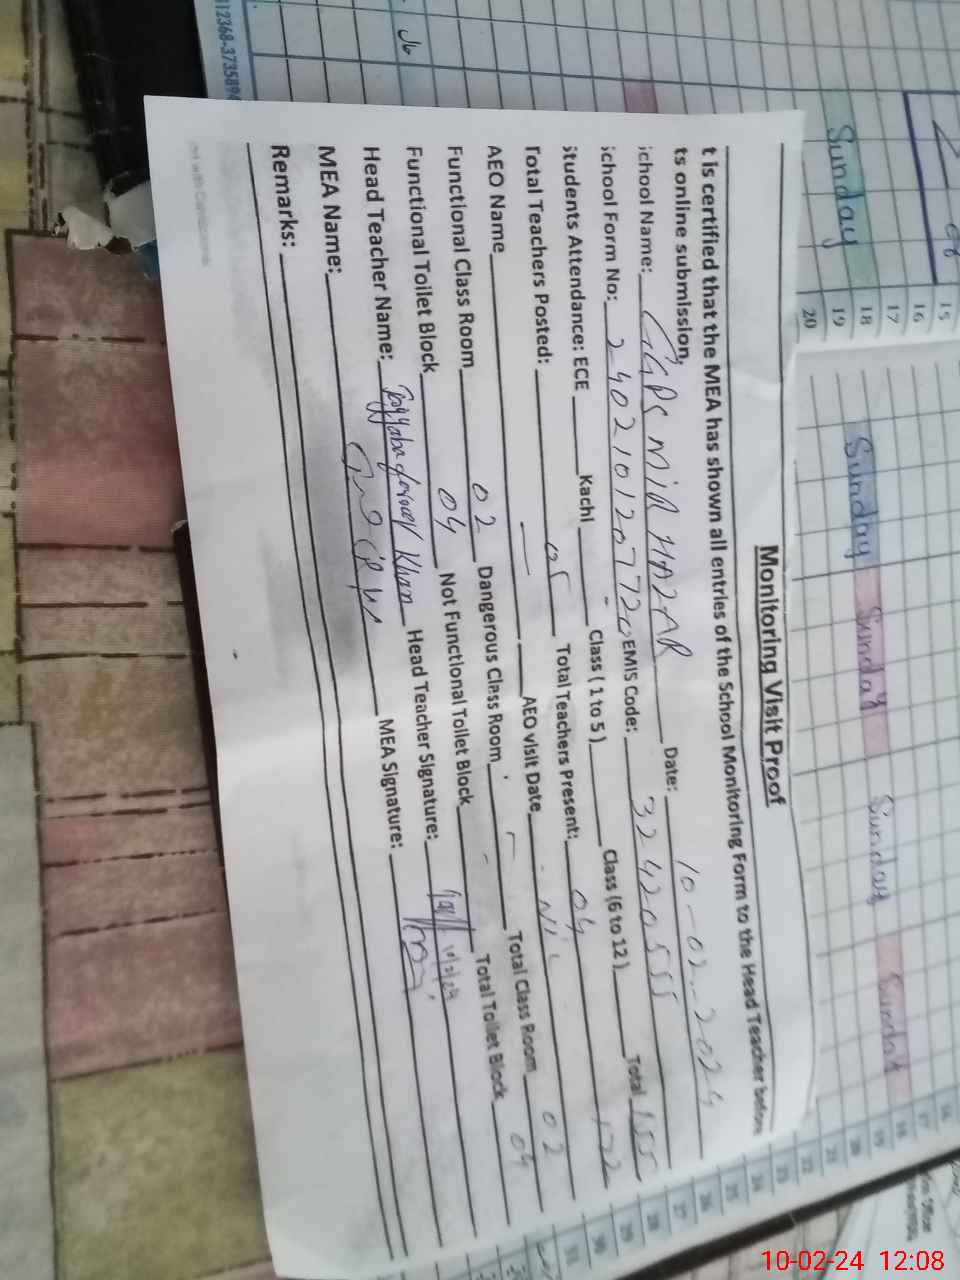 Monitoring Visit Proof
t is certified that the MEA has shown all entries of the School Monitoring Form to the Head Teacher before
ts online submission.
ichool Name: GGPS MIR HAZAR Date: 10-02-2024
ichool Form No: 2402101207720 EMIS Code: 32420555
Students Attendance: ECE Kachi Class ( 1 to 5 ) Class (6 to 12 ) Total 155
Total Teachers Posted: 05 Total Teachers Present: 04
AEO Name — AEO visit Date Nil
Functional Class Room 02 Dangerous Class Room Total Class Room 02
Functional Toilet Block 04 Not Functional Toilet Block Total Toilet Block 04
Head Teacher Name: Khan Head Teacher Signature: 10/2/24
MEA Name: MEA Signature:
Remarks:
112368-373589
Sunday
Sunday
Sunday
Sunday
Sunday
15
16
17
18
19
20
10-02-24 12:08